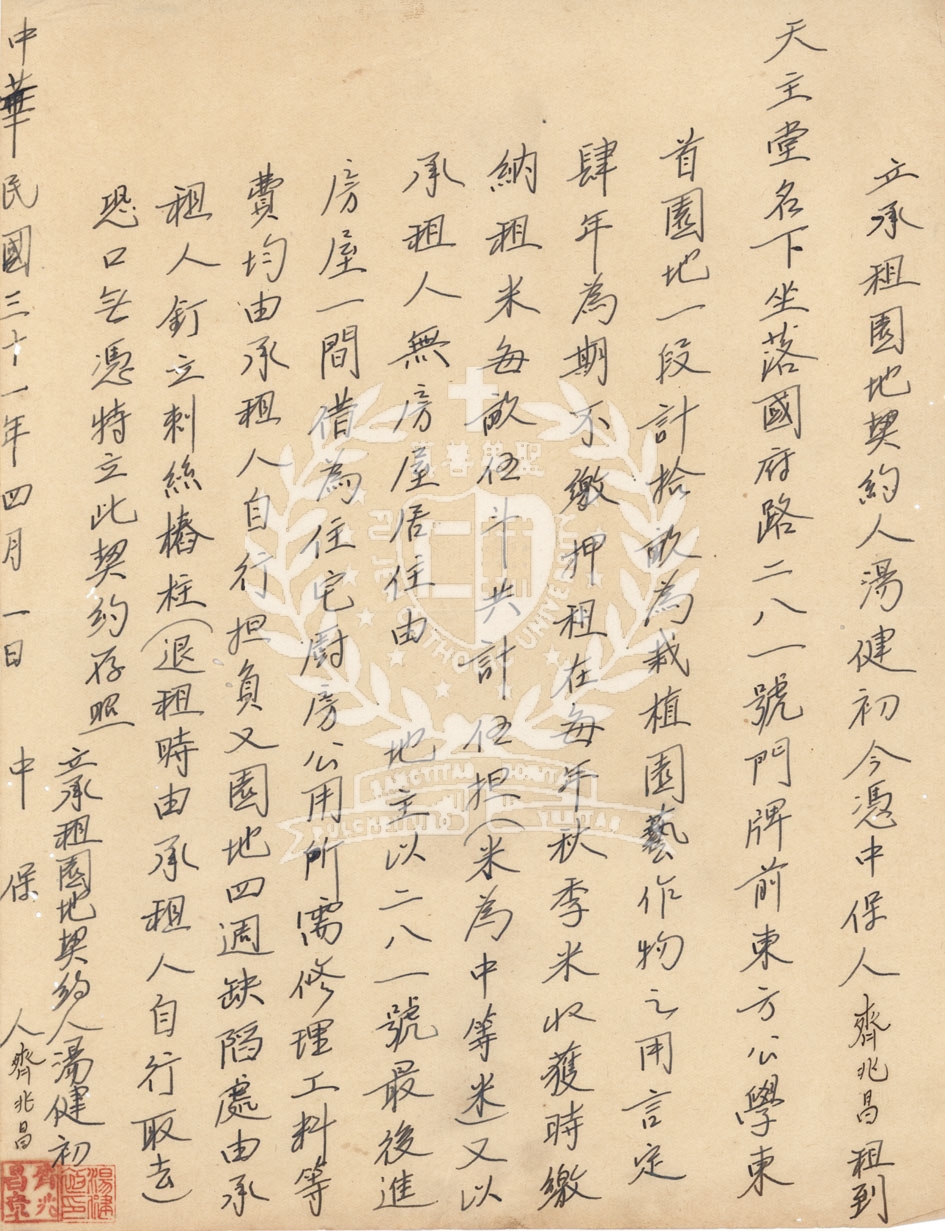 立承租園地契約人湯健初今憑中保人齊兆昌租到
天主堂名下坐落國府路二八一號門牌前東方公學東
首園地一段計拾畝為栽植園藝作物之用言定
肆年為期不繳押租在每年秋季米收獲時繳
納租米每畝伍斗共計伍担(米為中等米)又以
承租人無房屋居住由 地主以二八一號最後進
房屋一間借為住宅厨房公用所需修理工料等
費均由承租人自行担負又園地四週缺陷處由承
租人釘立刺絲樁柱(退租時由承租人自行取去)
恐口無憑特立此契約存照
立承租園地契約人湯健初
中華民國三十一年四月一日 中保人齊兆昌